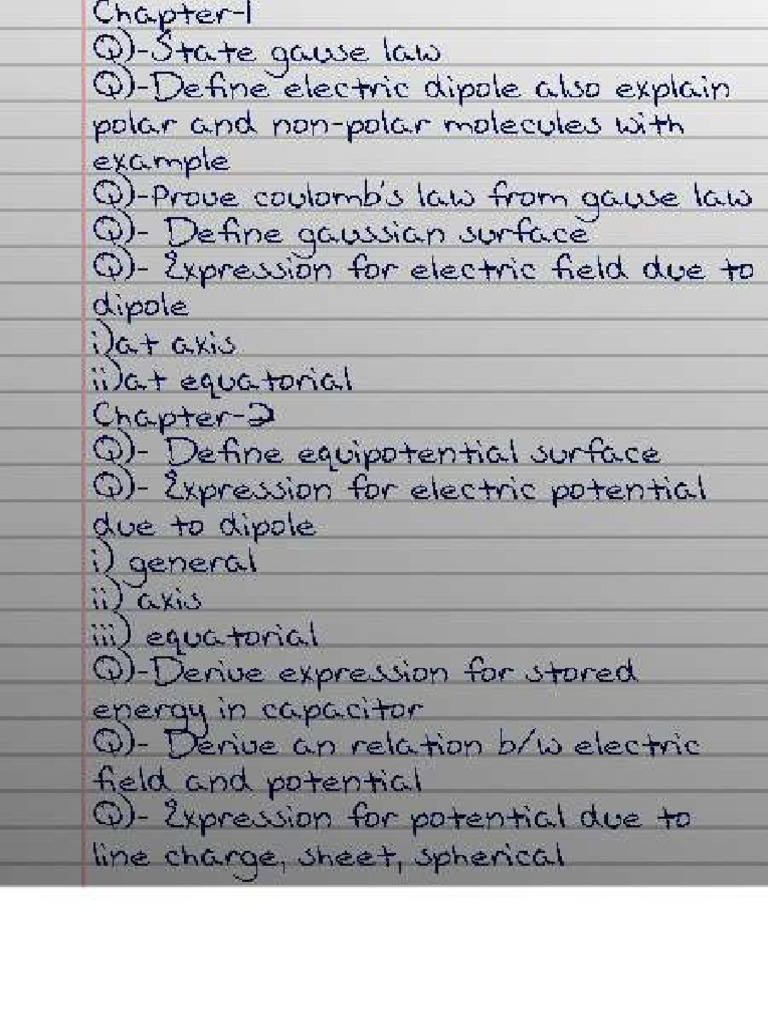 Chapter-1
Q)-State gause law
Q)-Define electric dipole also explain
polar and non-polar molecules with
example
Q)-Prove coulomb's law from gause law
Q)- Define gaussian surface
Q)- Expression for electric field due to
dipole
i)at axis
ii)at equatorial
Chapter-2
Q)- Define equipotential surface
Q)- Expression for electric potential
due to dipole
i) general
ii) axis
iii) equatorial
Q)-Derive expression for stored
energy in capacitor
Q)- Derive an relation b/w electric
field and potential
Q)- Expression for potential due to
line charge, sheet, spherical